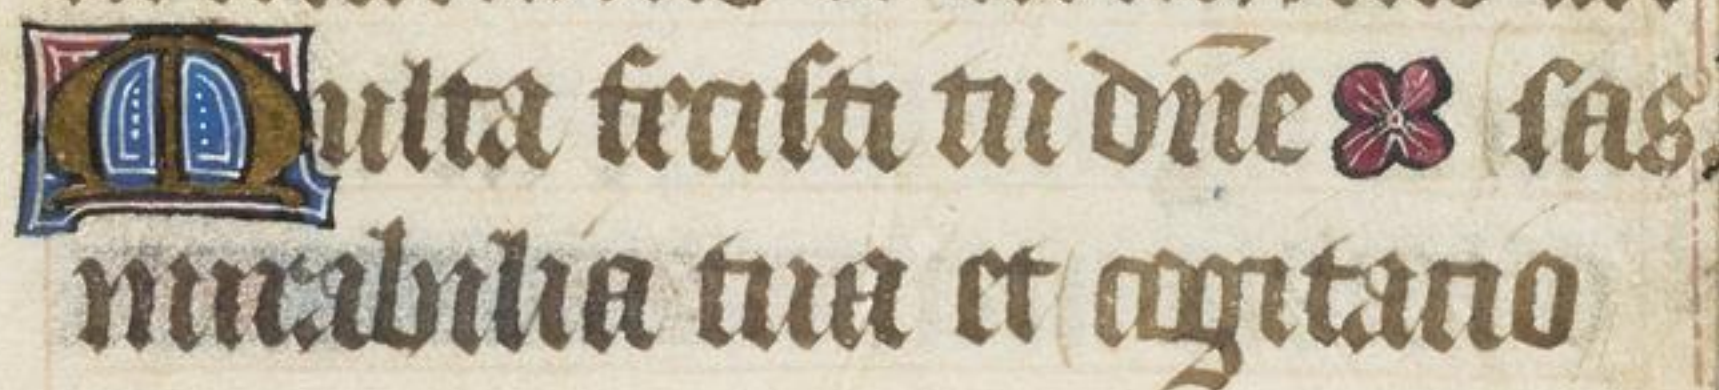 Multa fecisti tu dn̄e sas
mirabilia tua et cogitatio